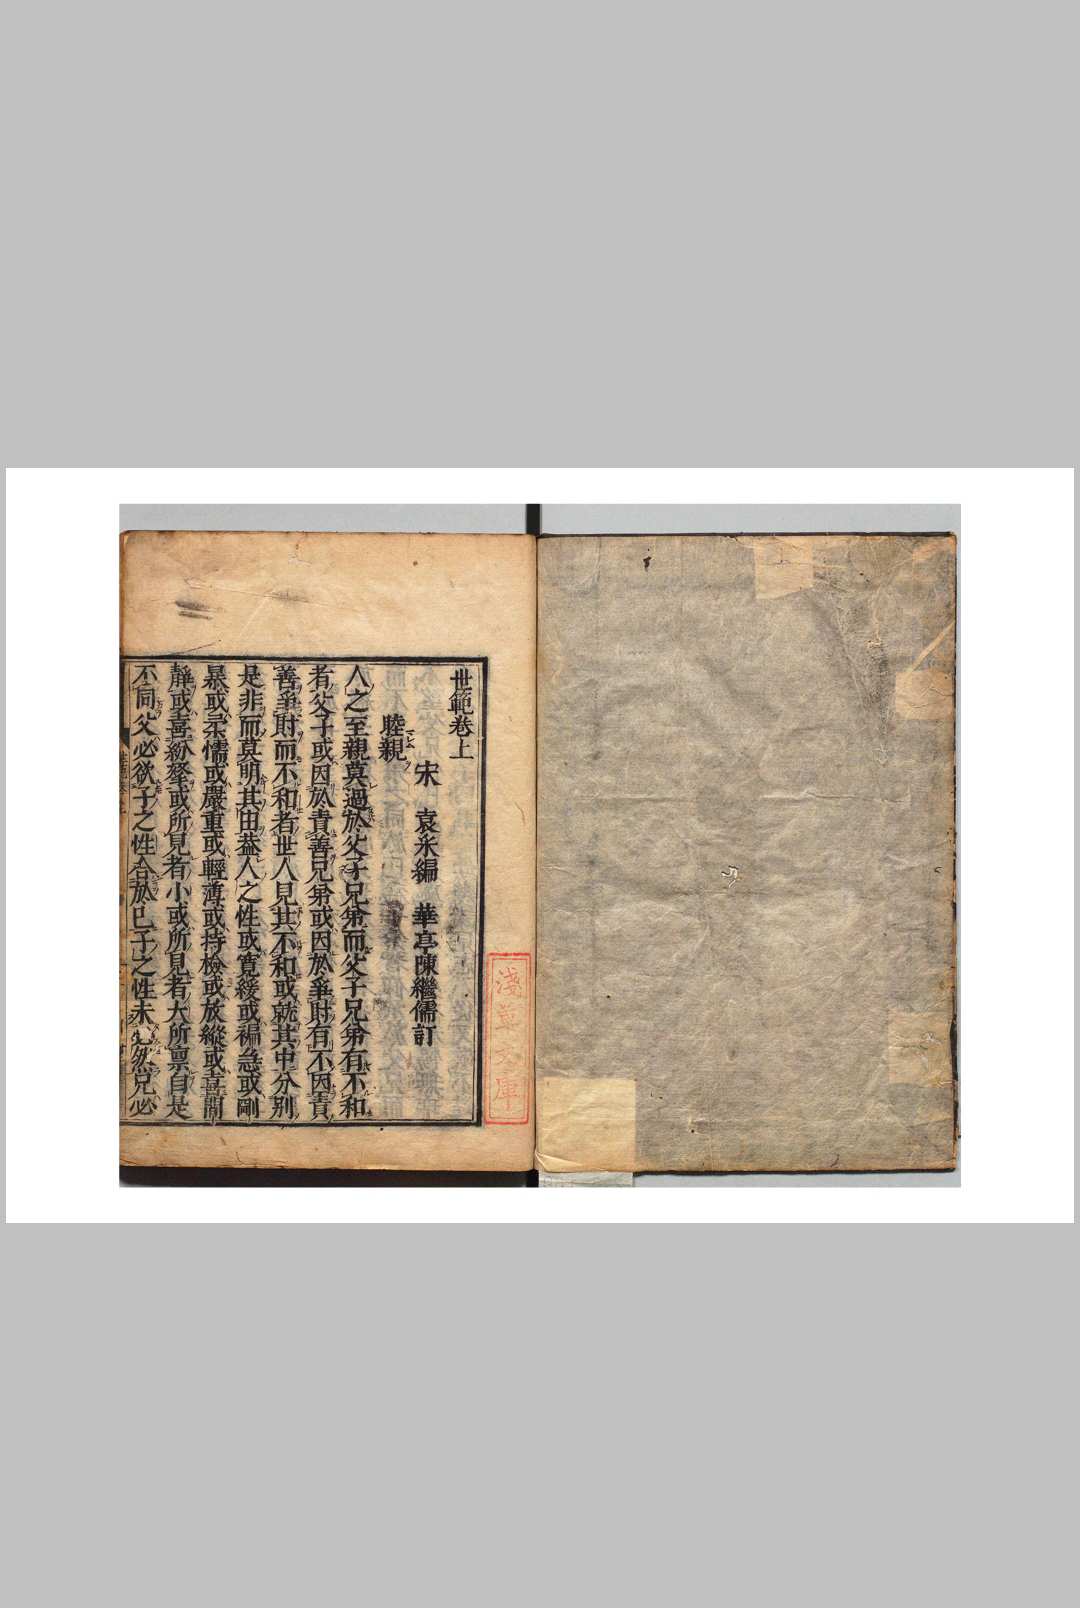 世範卷上
宋 袁采編 華亭陳繼儒訂
睦親
人之至親莫過於父子兄弟而父子兄弟有不和
者父子或因於責善兄弟或因於爭財有不因責
善爭財而不和者世人見其不和或就其中分別
是非而莫明其由葢人之性或寬緩或褊急或剛
暴或柔懦或嚴重或輕薄或持檢或放縱或喜閒
靜或喜紛拏或所見者小或所見者大所稟自是
不同父必欲子之性合於已子之性未必然兄必
淺草文庫